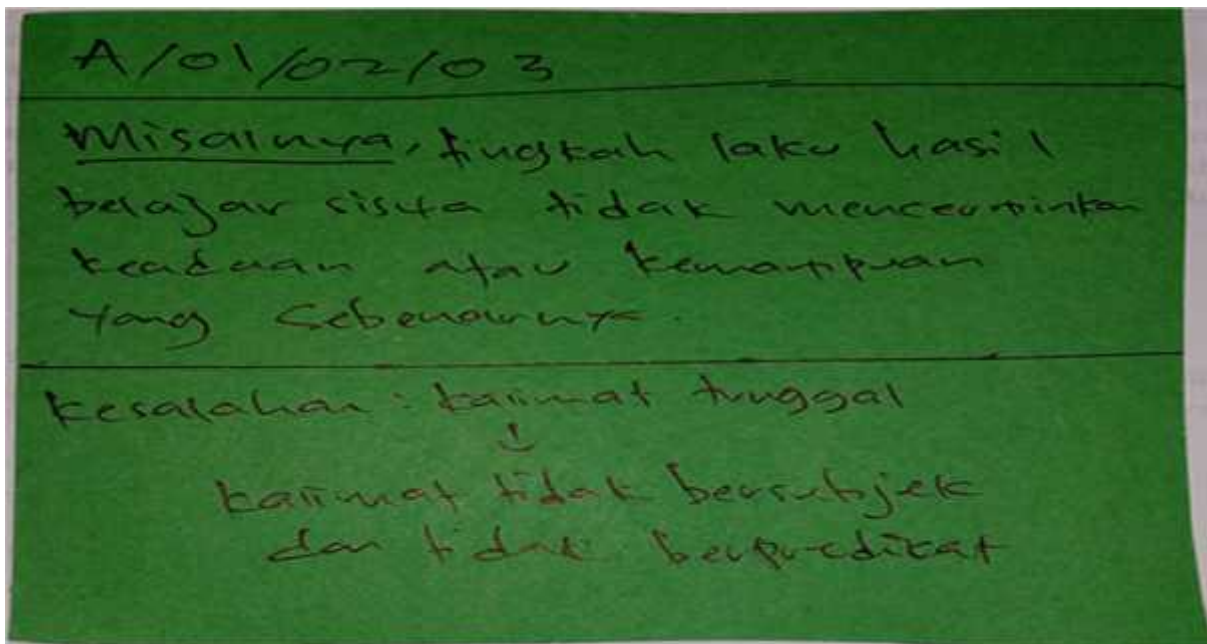 A/01/02/03
Misalnya, tingkah laku hasil
belajar siswa tidak mencerminkan
keadaan atau kemampuan
yang sebenarnya.
Kesalahan : kalimat tunggal
↓
kalimat tidak bersubjek
dan tidak berpredikat